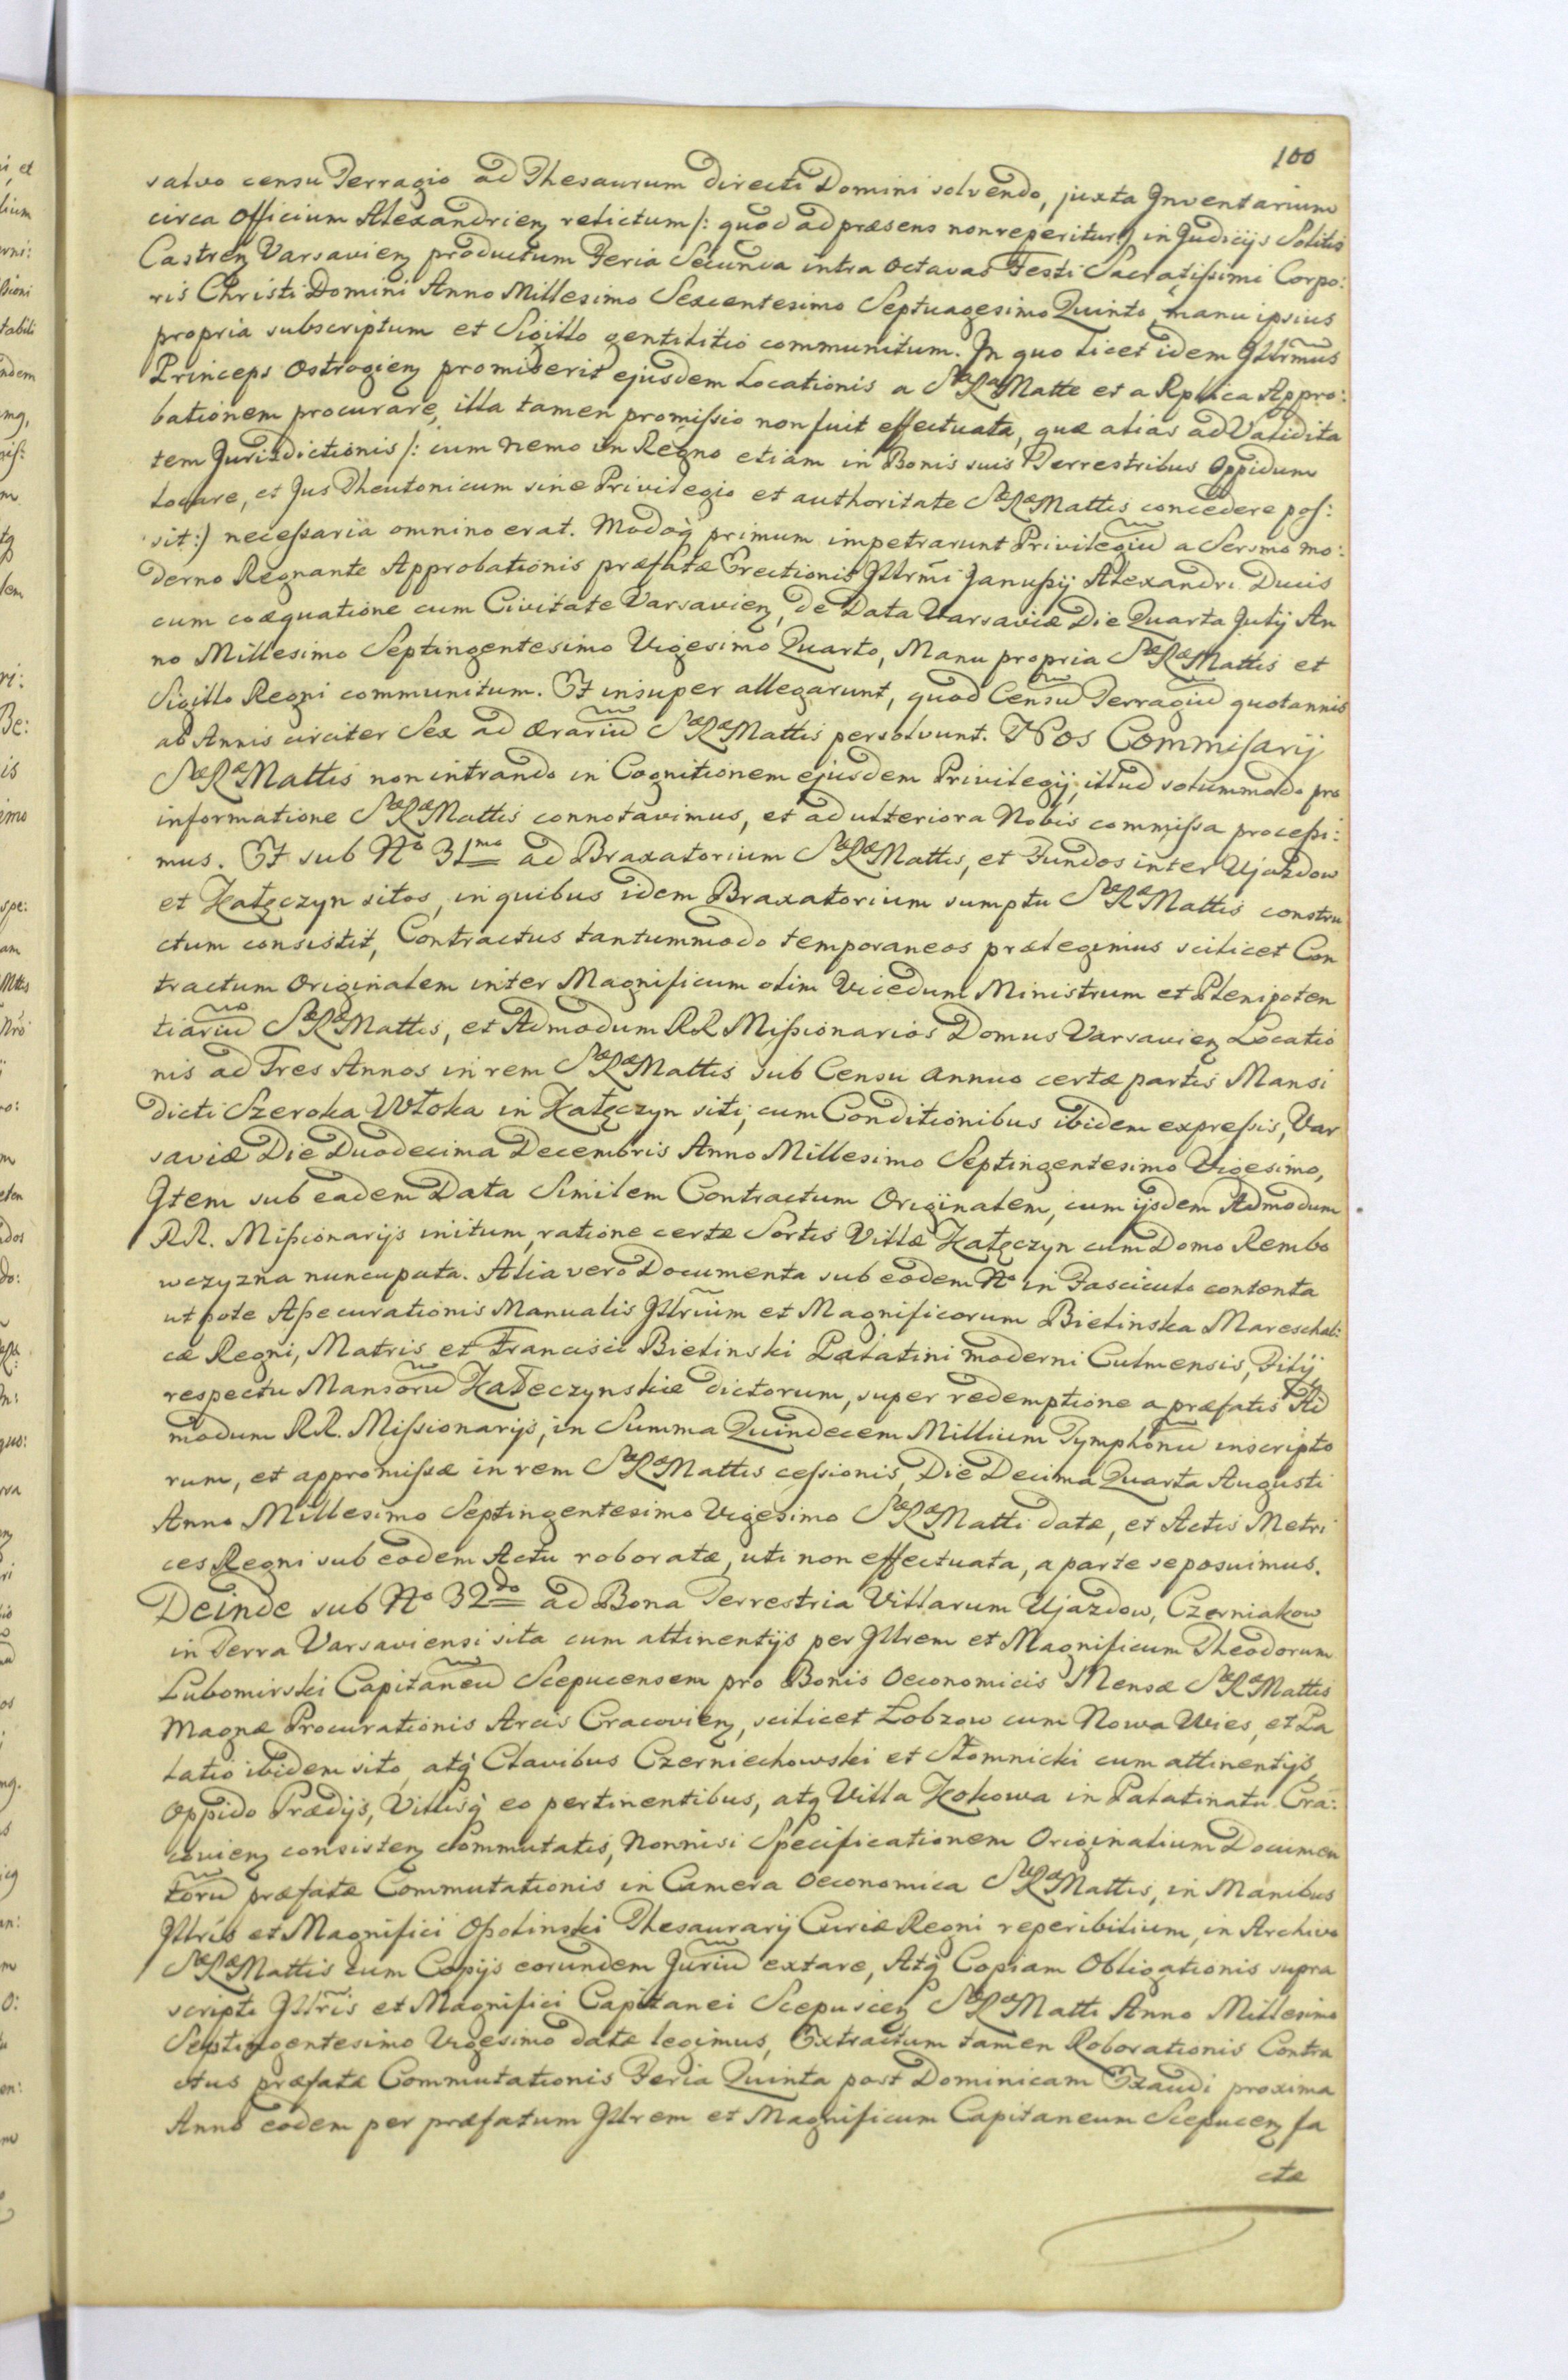 100
salvo censu Terragio ad Thesaurum directi Domini solvendo, juxta Inventarium
circa Officium Alexandrien relictum /: quod ad præsens non reperitur :/ in Judicijs Solitis
Castren Varsavien productum Feria Secunda intra Octavas Festi Sacratissimi Corpo:
ris Christi Domini Anno Millesimo Sexcentesimo Septuagesimo Quinto, manu ipsius
propria subscriptum et Sigillo gentilitio communitum. In quo licet idem Illrm̃us
Princeps Ostrogien promiserit ejusdem Locationis a Sa Ra Matte et a Rplica Appro:
bationem procurare, illa tamen promissio non fuit effectuata, quæ alias ad Validita
tem Jurisdictionis /: cum nemo in Regno etiam in Bonis suis Terrestribus Oppidum
locare, et Jus Theutonicum sine Privilegio et authoritate Sæ Ræ Mattis concedere pos:
sit :/ necessaria omnino erat. Modoq̀ primum impetrarunt Privilegiũ a Sermo mo:
derno Regnante Approbationis præfatæ Erectionis Illrm̃i Janussij Alexandri Ducis
cum coæquatione cum Civitate Varsavien, de Data Varsaviæ Die Quarta Julij An
no Millesimo Septingentesimo Vigesimo Quarto, Manu propria Sæ Ræ Mattis et
Sigillo Regni communitum. Et insuper allegarunt, quod Censũ Terragiũ quotannis
ab Annis circiter Sex ad Ærariũ Sæ Ræ Mattis persolvunt. Nos Commissarij
Sæ Ræ Mattis non intrando in Cognitionem ejusdem Privilegij, illud solummodo pro
informatione Sæ Ræ Mattis connotavimus, et ad ulteriora Nobis commissa processi:
mus. Et sub No 31mo ad Braxatorium Sæ Ræ Mattis, et Fundos inter Ujazdow
et Kałęczyn sitos, in quibus idem Braxatorium sumptu Sæ Ræ Mattis constru
ctum consistit, Contractus tantummodo temporaneos prælegimus scilicet Con
tractum Originalem inter Magnificum olim Vicedum Ministrum et Plenipoten
tiariũ Sæ Ræ Mattis, et Admodum RR Missionarios Domus Varsavien Locatio
nis ad Tres Annos in rem Sæ Ræ Mattis sub Censu annuo certæ partis Mansi
dicti Szeroka Włoka in Kałęczyn siti, cum Conditionibus ibidem expressis, Var
saviæ Die Duodecima Decembris Anno Millesimo Septingentesimo Vigesimo,
Item sub eadem Data Similem Contractum Originalem, cum ijsdem Admodum
RR. Missionarijs initum, ratione certæ Sortis Villæ Kałęczyn cum Domo Rembo
wczyzna nuncupata. Alia vero Documenta sub eodem No in Fasciculo contenta
ut pote Assecurationis Manualis Illrĩum et Magnificorum Bielinska Mareschal:
cæ Regni, Matris et Francisci Bielinski Palatini moderni Culmensis, Filij
respectu Mansorũ Kałeczynskie dictorum, super redemptione a præfatis Ad
modum RR. Missionarijs, in Summa Quindecem Millium Tymphonũ inscripto
rum, et appromissæ in rem Sæ Ræ Mattis cessionis, Die Decima Quarta Augusti
Anno Millesimo Septingentesimo Vigesimo Sæ Ræ Matti datæ, et Actis Metri
ces Regni sub eodem Actu roboratæ, uti non effectuata, a parte seposuimus.
Deinde sub No 32do ad Bona Terrestria Villarum Ujazdow, Czerniakow
in Terra Varsaviensi sita cum attinentijs per Illrem et Magnificum Theodorum
Lubomirski Capitaneũ Scepucensem pro Bonis Oeconomicis Mensæ Sæ Ræ Mattis
Magnæ Procurationis Arcis Cracovien, scilicet Łobzow cum Nowa Wies, et Pa
latio ibidem sito, atq̀ Clavibus Czerniechowski et Słomnicki cum attinentijs,
Oppido Prædijs, Villisq̀ eo pertinentibus, atq̀ Villa Kokowa in Palatinatu Cra:
covien consisten Commutatis, Nonnisi Specificationem Originalium Documen
torũ præfatæ Commutationis in Camera Oeconomica Sæ Ræ Mattis, in Manibus
Illris et Magnifici Ossolinski Thesaurarij Curiæ Regni reperibilium, in Archivo
Sæ Ræ Mattis cum Copijs eorundem Juriũ extare, Atq̀ Copiam Obligationis supra
scripti Illr̃is et Magnifici Capitanei Scepusien Sæ Ræ Matti Anno Millesimo
Septingentesimo Vigesimo datæ legimus, Extractum tamen Roborationis Contra
ctus præfatæ Commutationis Feria Quinta post Dominicam Exaudi proxima
Anno eodem per præfatum Illrem et Magnificum Capitaneum Scepucen fa
ctæ